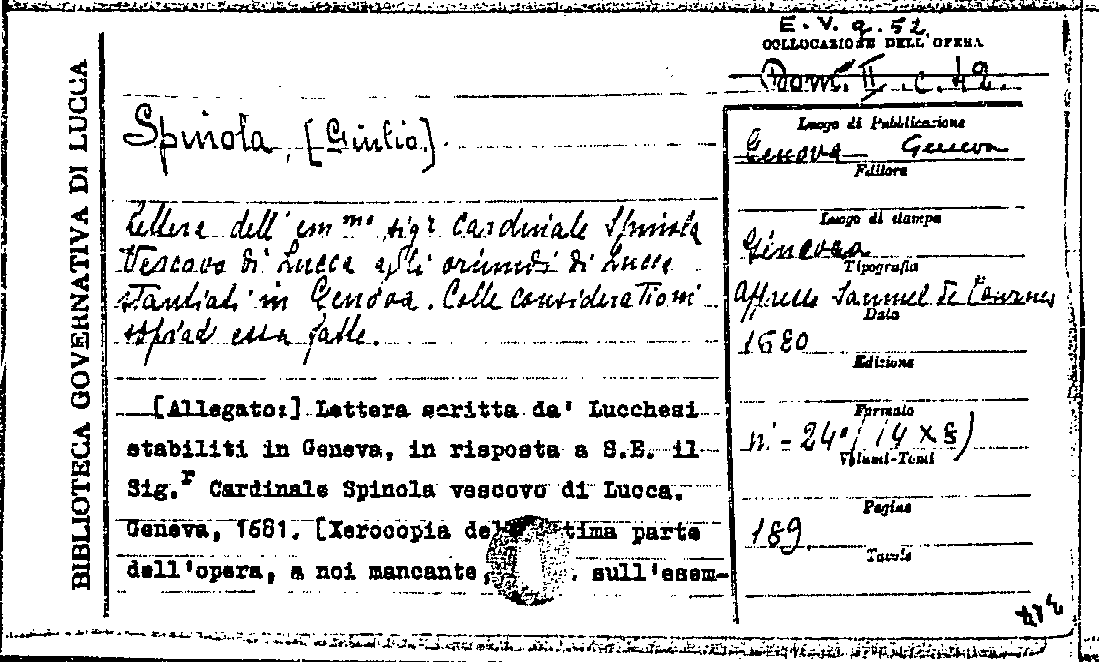 BIBLIOTECA GOVERNATIVA DI LUCCA
E. V. q. 52
COLLOCAZIONE DELL'OPERA
II . c. 42.
Spinola, [Giulio].
Lettera dell' em.mo sigr Cardinale Spinola
Vescovo di Lucca agli oriundi di Lucca
stantiati in Genova. Colle considerationi
sopra ad essa fatte.
[Allegato:] Lettera scritta da' Lucchesi
stabiliti in Geneva, in risposta a S.E. il
Sig.r Cardinale Spinola vescovo di Lucca.
Geneva, 1681. [Xerocopia parte
dell'opera, a noi mancante, sull'esem-
Luogo di Pubblicazione
Genova Geneva
Editore
Luogo di stampa
Tipografia
Appresso Samuel De Tournes
Data
1680
Edizione
Formato
in-24°(14x8)
Volumi-Tomi
Pagine
189.
Tavole